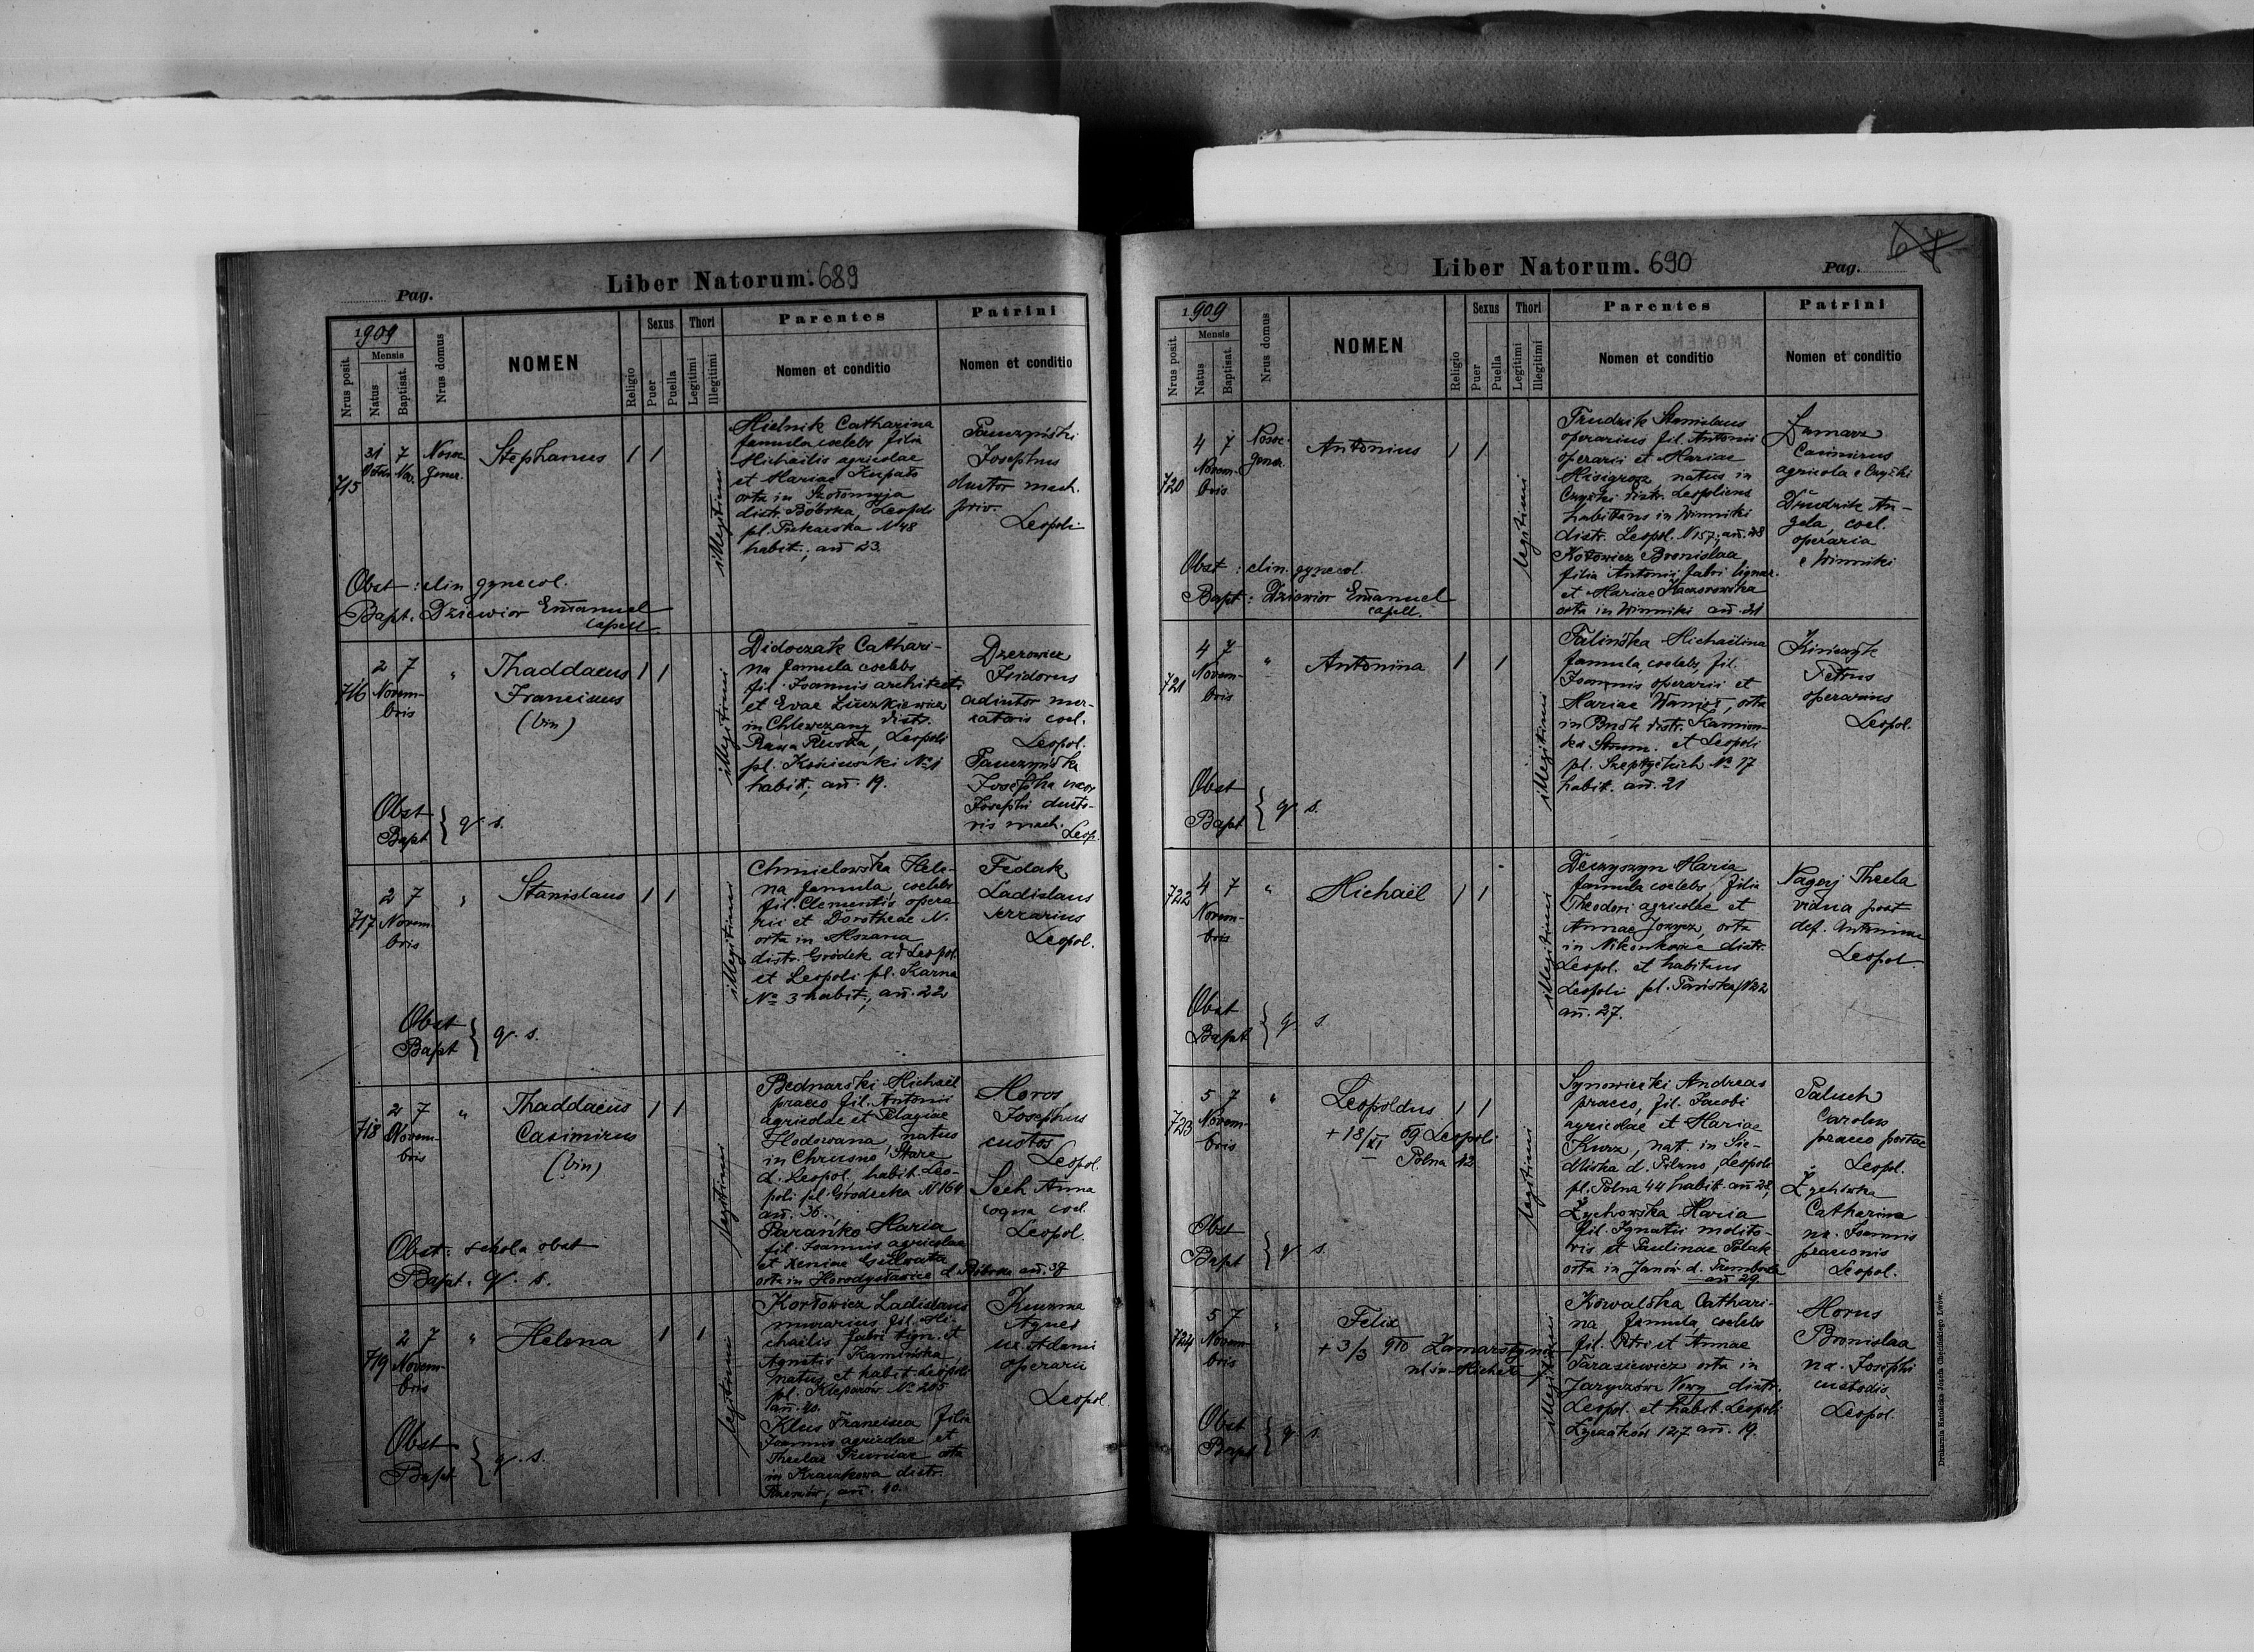 Pag.
Liber Natorum. 689
1909
Nrus posit.
Mensis
Natus
Baptisat.
Nrus domus
NOMEN
Religio
Sexus
Puer
Puella
Thori
Legitimi
Illegitimi
Parentes
Nomen et conditio
Patrini
Nomen et conditio
715
31 7
Nov.
Stephanus
1 1
illegitimi
Hielnik Catharina
famula coelebs filia
Michaelis agricolae
et Mariae
orta in
distr. Bóbrka, Leopoli
pl. N 48
habit., añ 23.
Josephus
ductor mach.
priv.
Leopoli
Obst: clin gynecol.
Bapt. Dziewior Emanuel
capell.
716
2 7
Novem-
bris
"
Thaddaeus
Franciscus
(bin)
1 1
illegitimi
Didoczak Cathari-
na famula coelebs
fil. Joannis architecti
et Evae
in Chlewczany distr.
Rawa Ruska, Leopoli
pl. No 1
habit., añ. 19.
Dzerowicz
Isidorus
adiutor mer-
catoris coel.
Leopol.
Josepha uxor
Josephi ducto-
ris mach.
Leop.
Obst
Bapt } q. s.
717
2 7
Novem-
bris
"
Stanislaus
1 1
illegitimi
Chmielowska Hele-
na famula, coelebs
fil. Clementis opera-
rii et Dorotheae N.
orta in Mszana
distr. Gródek ad Leopol.
et Leopoli pl. Karna
No 3 habit., añ. 22
Fedak
Ladislaus
serrarius
Leopol.
Obst
Bapt } q. s.
718
2 7
Novem-
bris
"
Thaddaeus
Casimirus
(bin)
1 1
legitimi
Bednarski Michaël
praeco fil. Antonii
agricolae et Pelagiae
Hodowana, natus
in Chrusno Stare
d. Leopol. habit. Leo-
poli pl. Gródecka N 164
añ. 36.
Parańko Maria
fil. Joannis agricolae
et Xeniae
orta in d. Bóbrka añ. 38
Moros
Josephus
custos
Leopol.
Sech Anna
coqua coel.
Leopol.
Obst. schola obst
Bapt. q. s.
719
2 7
Novem-
bris
"
Helena
1 1
legitimi
Kortowicz Ladislaus
murarius fil. Mi-
chaelis fabri lign. et
Agnetis Kamińska,
natus et habit. Leopoli
pl. Kleparów No 205
añ. 40.
Klus Francisca filia
Joannis agricolae et
Theclae orta
in distr.
añ. 40.
Kuzma
Agnes
ux. Adami
operarii
Leopol.
Obst
Bapt } q. s.
Liber Natorum. 690
Pag.
1909
Nrus posit.
Mensis
Natus
Baptisat.
Nrus domus
NOMEN
Religio
Sexus
Puer
Puella
Thori
Legitimi
Illegitimi
Parentes
Nomen et conditio
Patrini
Nomen et conditio
720
4 7
Novem-
bris
Antonius
1 1
legitimi
Trudzik Stanislaus
operarius fil. Antonii
operarii et Mariae
natus in
Czyżki distr. Leopoliens
habitans in Winniki
distr. Leopol. N 157, añ. 28
Kotowicz Bronislaa
filia Antonii fabri lignar.
et Mariae Kaczorowska
orta in Winniki añ. 21
Casimirus
agricola e Czyżki
Drudzik An-
gela, coel.
operaria
e Winniki
Obst: clin. gynecol.
Bapt: Dziewior Emanuel
capell.
721
4 7
Novem-
bris
"
Antonina
1 1
illegitimi
Talińska Michaëlina
famula, coelebs, fil.
Joannis operarii et
Mariae orta
in Busk distr. Kamion-
ka Strum. et Leopoli
pl. Szeptyckich No 17
habit. añ. 21
Petrus
operarius
Leopol.
Obst
Bapt } q. s.
722
4 7
Novem-
bris
"
Michaël
1 1
illegitimi
Maria
famula coelebs, filia
Theodori agricolae et
Annae orta
in Nikonkowice distr.
Leopol. et habitans
Leopoli pl. Pańska N 22
añ. 27.
Nagorj Thecla
vidua post
def. Antonium
Leopol.
Obst
Bapt } q. s.
723
5 7
Novem-
bris
"
Leopoldus
+ 18/XI 09 Leopoli
Polna 42
1 1
legitimi
Synowiecki Andreas
praeco, fil. Jacobi
agricolae et Mariae
Kurz, nat. in Sie-
dliska d. Pilzno, Leopoli
pl. Polna 44 habit. añ 28,
Żychowska Maria
fil. Ignatii molito-
ris et Paulinae Polak
orta in Janów d. Trembowla
añ 29
Paluch
Carolus
praeco portae
Leopol.
Żychowska
Catharina
ux. Joannis
praeconis
Leopol.
Obst
Bapt } q. s.
724
5 7
Novem-
bris
"
Felix
+ 3/3 910 Zamarstynów
ul. św. Michała
illegitimi
Kowalska Cathari-
na famula, coelebs
fil. Petri et Annae
Tarasiewicz orta in
Jaryczów Nowy distr.
Leopol. et habit. Leopoli
Łyczaków 127 añ. 19.
Morus
Bronislaa
ux. Josephi
custodis
Leopol.
Obst
Bapt } q. s.
Drukarnia Katolicka Józefa Chęcińskiego Lwów.